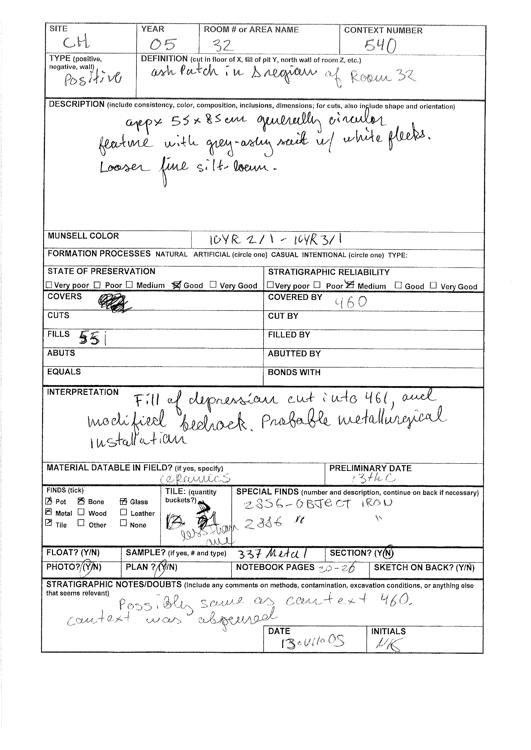 SITE YEAR ROOM # or AREA NAME CONTEXT NUMBER
CH 05 32 540
TYPE (positive, negative, wall) DEFINITION (cut in floor of X, fill of pit Y, north wall of room Z, etc.)
Positive ash patch in S region of Room 32
DESCRIPTION (include consistency, color, composition, inclusions, dimensions; for cuts, also include shape and orientation)
appx 55 x 85 cm generally circular
feature with grey-ashy soil w/ white flecks.
Looser fine silt-loam.
MUNSELL COLOR 10YR 2/1 - 10YR 3/1
FORMATION PROCESSES NATURAL ARTIFICIAL (circle one) CASUAL INTENTIONAL (circle one) TYPE:
STATE OF PRESERVATION STRATIGRAPHIC RELIABILITY
Very poor Poor Medium Good Very Good Very poor Poor Medium Good Very Good
COVERS COVERED BY 460
CUTS CUT BY
FILLS 551 FILLED BY
ABUTS ABUTTED BY
EQUALS BONDS WITH
INTERPRETATION Fill of depression cut into 461, and
modified bedrock. Probable metallurgical
installation
MATERIAL DATABLE IN FIELD? (if yes, specify) PRELIMINARY DATE
ceramics 13th C
FINDS (tick) TILE: (quantity buckets?) SPECIAL FINDS (number and description, continue on back if necessary)
Pot Bone Glass 2356-OBJECT IRON
Metal Wood Leather 2386 " "
Tile Other None less than one
FLOAT? (Y/N) SAMPLE? (if yes, # and type) 337 Metal SECTION? (Y/N)
PHOTO? (Y/N) PLAN ? (Y/N) NOTEBOOK PAGES 20-26 SKETCH ON BACK? (Y/N)
STRATIGRAPHIC NOTES/DOUBTS (include any comments on methods, contamination, excavation conditions, or anything else that seems relevant)
Possibly same as context 460.
context was
DATE INITIALS
13.VII.05